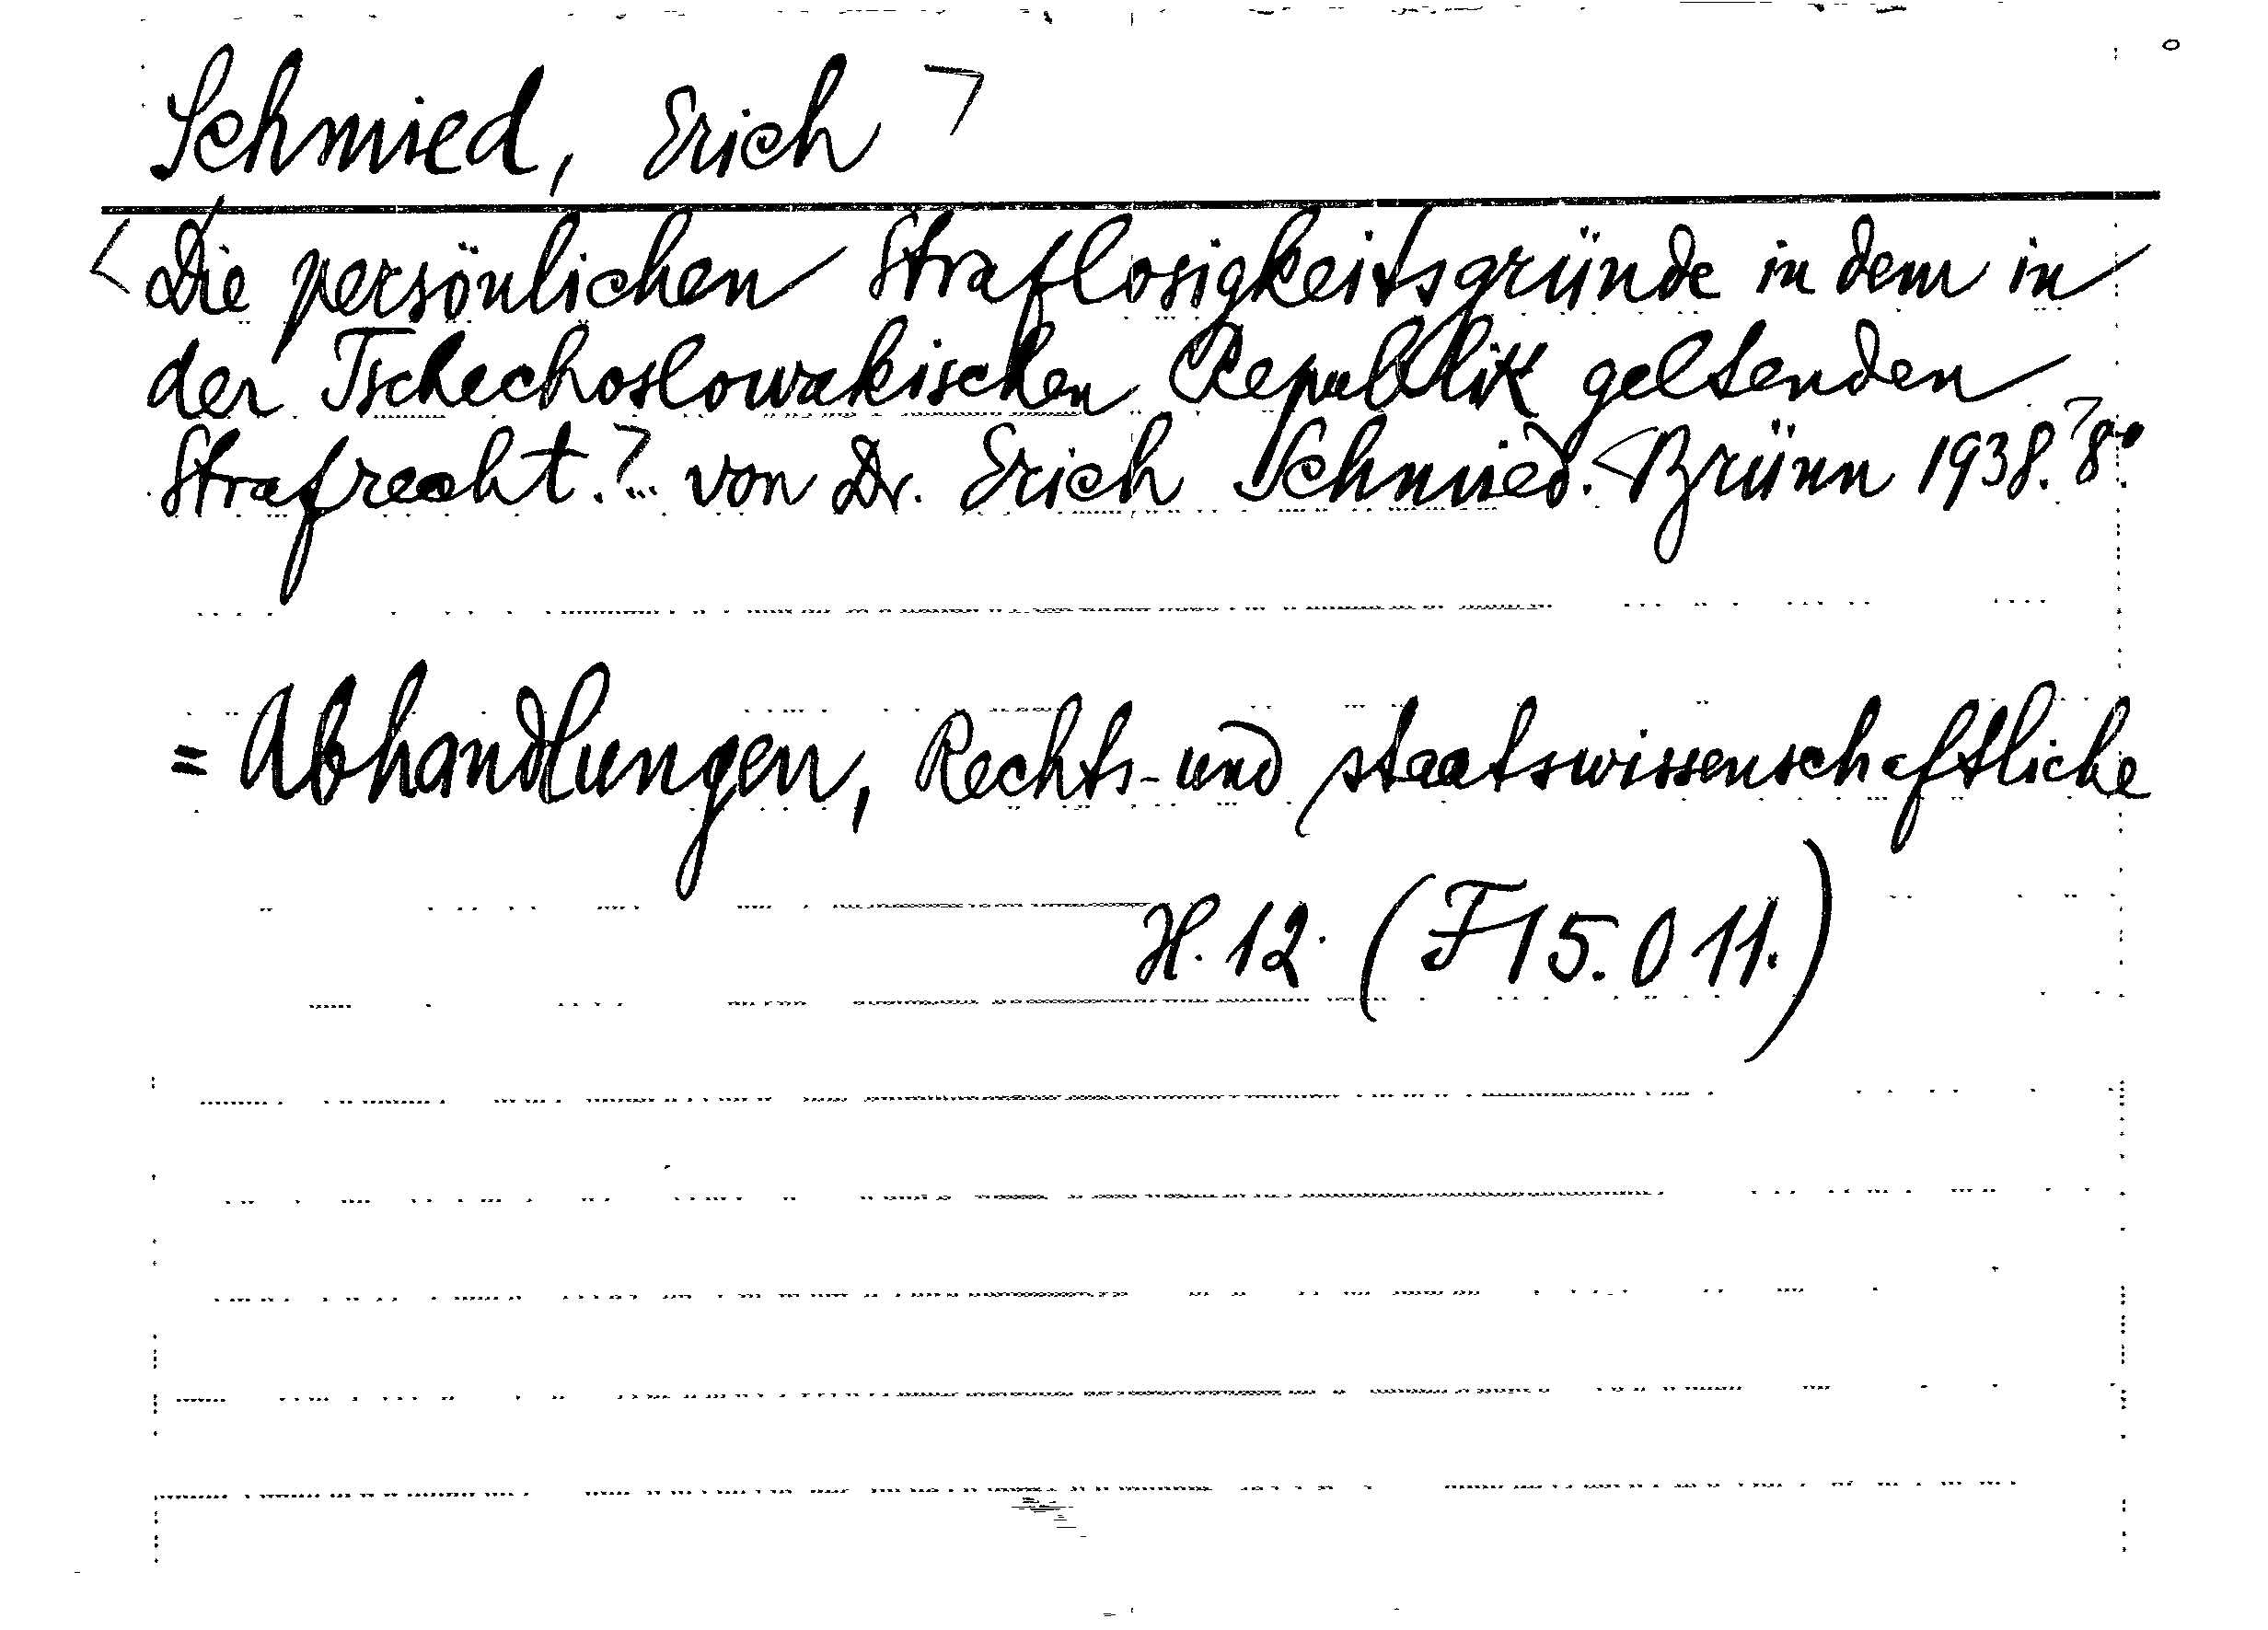 Schmied, Erich
Die persönlichen Straflosigkeitsgründe in dem in
der Tschechoslowakischen Republik geltenden
Strafrecht. ... von Dr. Erich Schmied. Brünn 1938. 8°.
= Abhandlungen, Rechts- und staatswissenschaftliche
H. 12. (F 15.011.)